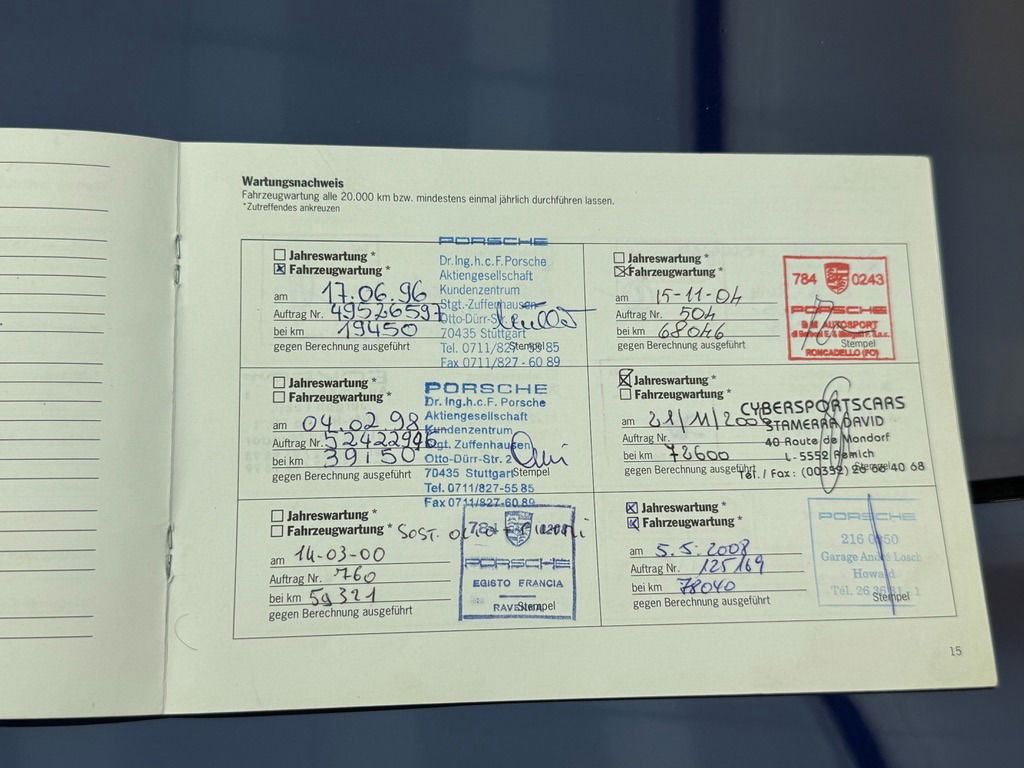 Wartungsnachweis
Fahrzeugwartung alle 20.000 km bzw. mindestens einmal jährlich durchführen lassen.
*Zutreffendes ankreuzen
Jahreswartung *
Fahrzeugwartung *
am 17.06.96
Auftrag Nr. 49526597
bei km 19450
gegen Berechnung ausgeführt
PORSCHE
Dr.Ing.h.c.F.Porsche
Aktiengesellschaft
Kundenzentrum
Stgt.-Zuffenhausen
Otto-Dürr-Str. 2
70435 Stuttgart
Stempel
Tel. 0711/827-55 85
Fax 0711/827-60 89
Jahreswartung *
Fahrzeugwartung *
am 15-11-04
Auftrag Nr. 504
bei km 68046
gegen Berechnung ausgeführt
784 0243
PORSCHE
AUTOSPORT
Stempel
RONCADELLO (FO)
Jahreswartung *
Fahrzeugwartung *
am 04.02.98
Auftrag Nr. 52422996
bei km 39150
gegen Berechnung ausgeführt
PORSCHE
Dr. Ing. h.c.F. Porsche
Aktiengesellschaft
Kundenzentrum
Stgt. Zuffenhausen
Otto-Dürr-Str. 2
70435 Stuttgart
Stempel
Tel. 0711/827-55 85
Fax 0711/827-60 89
Jahreswartung *
Fahrzeugwartung *
am 21/11/200
Auftrag Nr.
bei km 72600
gegen Berechnung ausgeführt
CYBERSPORTSCARS
STAMERRA DAVID
40 Route de Mondorf
L-5552 Remich
Stempel
Tél./Fax: (00352) 26 66 40 68
Jahreswartung *
Fahrzeugwartung *
SOST. olio +
am 14-03-00
Auftrag Nr. 760
bei km 59321
gegen Berechnung ausgeführt
784
PORSCHE
EGISTO FRANCIA
RAVENNA
Stempel
Jahreswartung *
Fahrzeugwartung *
am 5.5.2008
Auftrag Nr. 125169
bei km 78040
gegen Berechnung ausgeführt
PORSCHE
216 0250
Garage André Losch
Howald
Tél. 26
Stempel
15